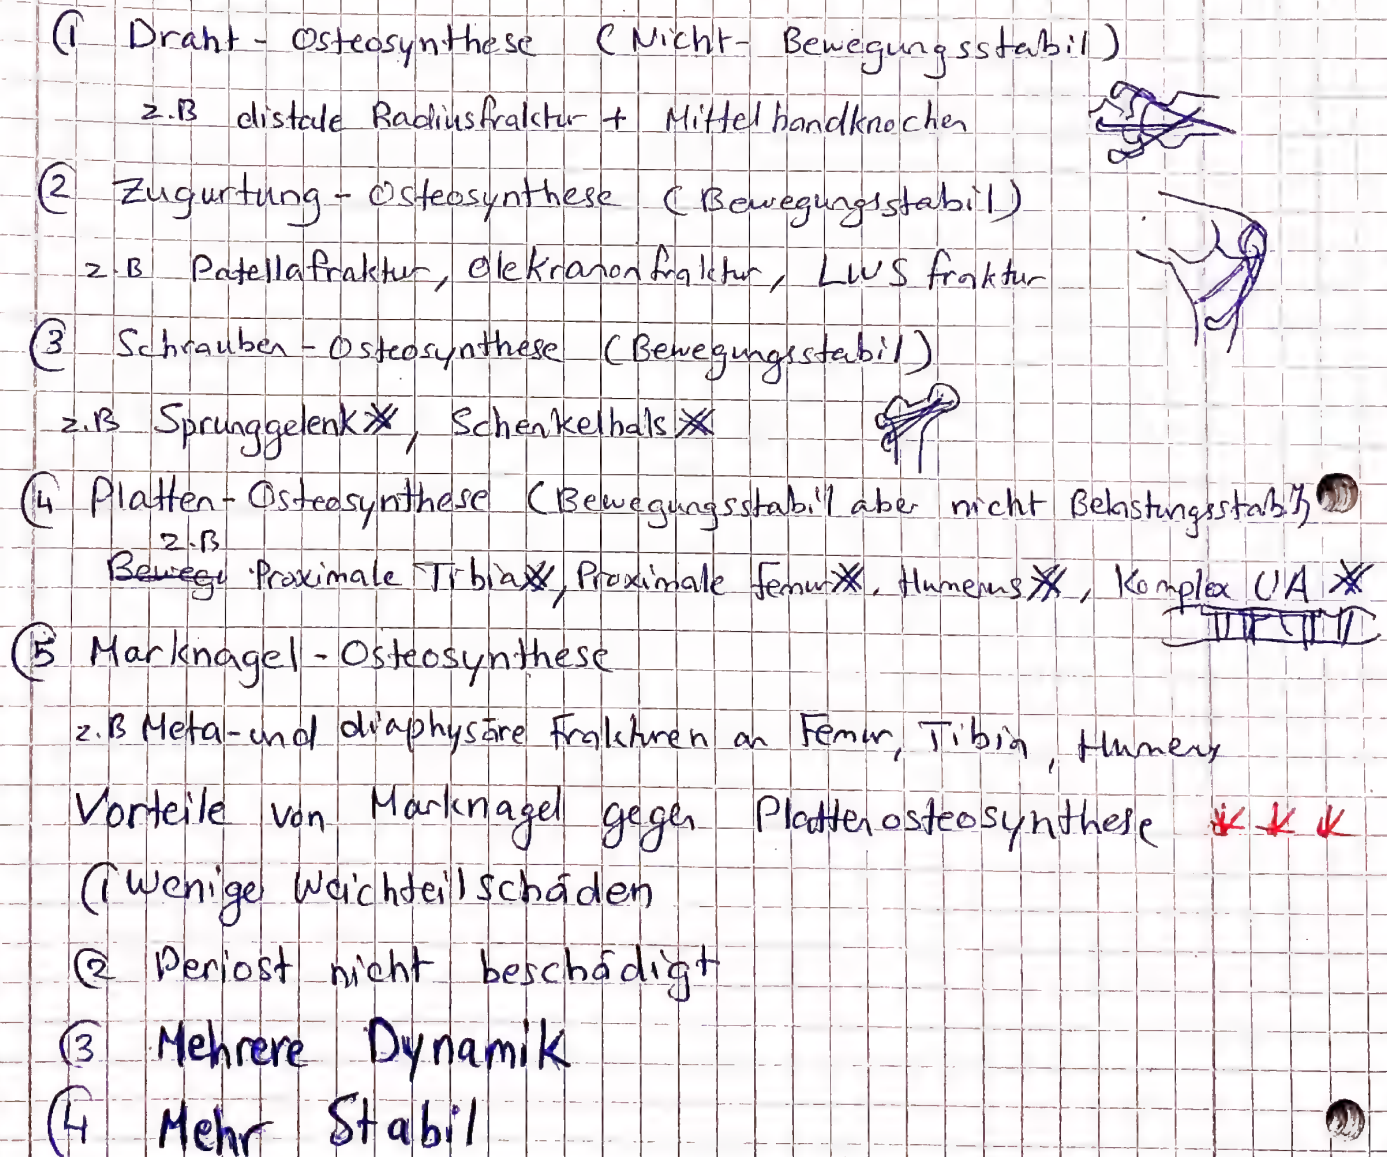 ① Draht - Osteosynthese (Nicht- Bewegungsstabil)
z.B distale Radiusfraktur + Mittelhandknochen
② Zugurtung - Osteosynthese (Bewegungsstabil)
z.B Patellafraktur, Olekranonfraktur, LWS fraktur
③ Schrauben - Osteosynthese (Bewegungsstabil)
z.B Sprunggelenk, Schenkelhals
④ Platten - Osteosynthese (Bewegungsstabil aber nicht Belastungsstabil)
z.B
Bewegu Proximale Tibia, Proximale femur, Humerus, Komplex UA
⑤ Marknagel - Osteosynthese
z.B Meta- und diaphysäre Frakturen an Femur, Tibia, Humerus
Vorteile von Marknagel gegen Plattenosteosynthese
① Wenige Weichteilschäden
② Periost nicht beschädigt
③ Mehrere Dynamik
④ Mehr Stabil